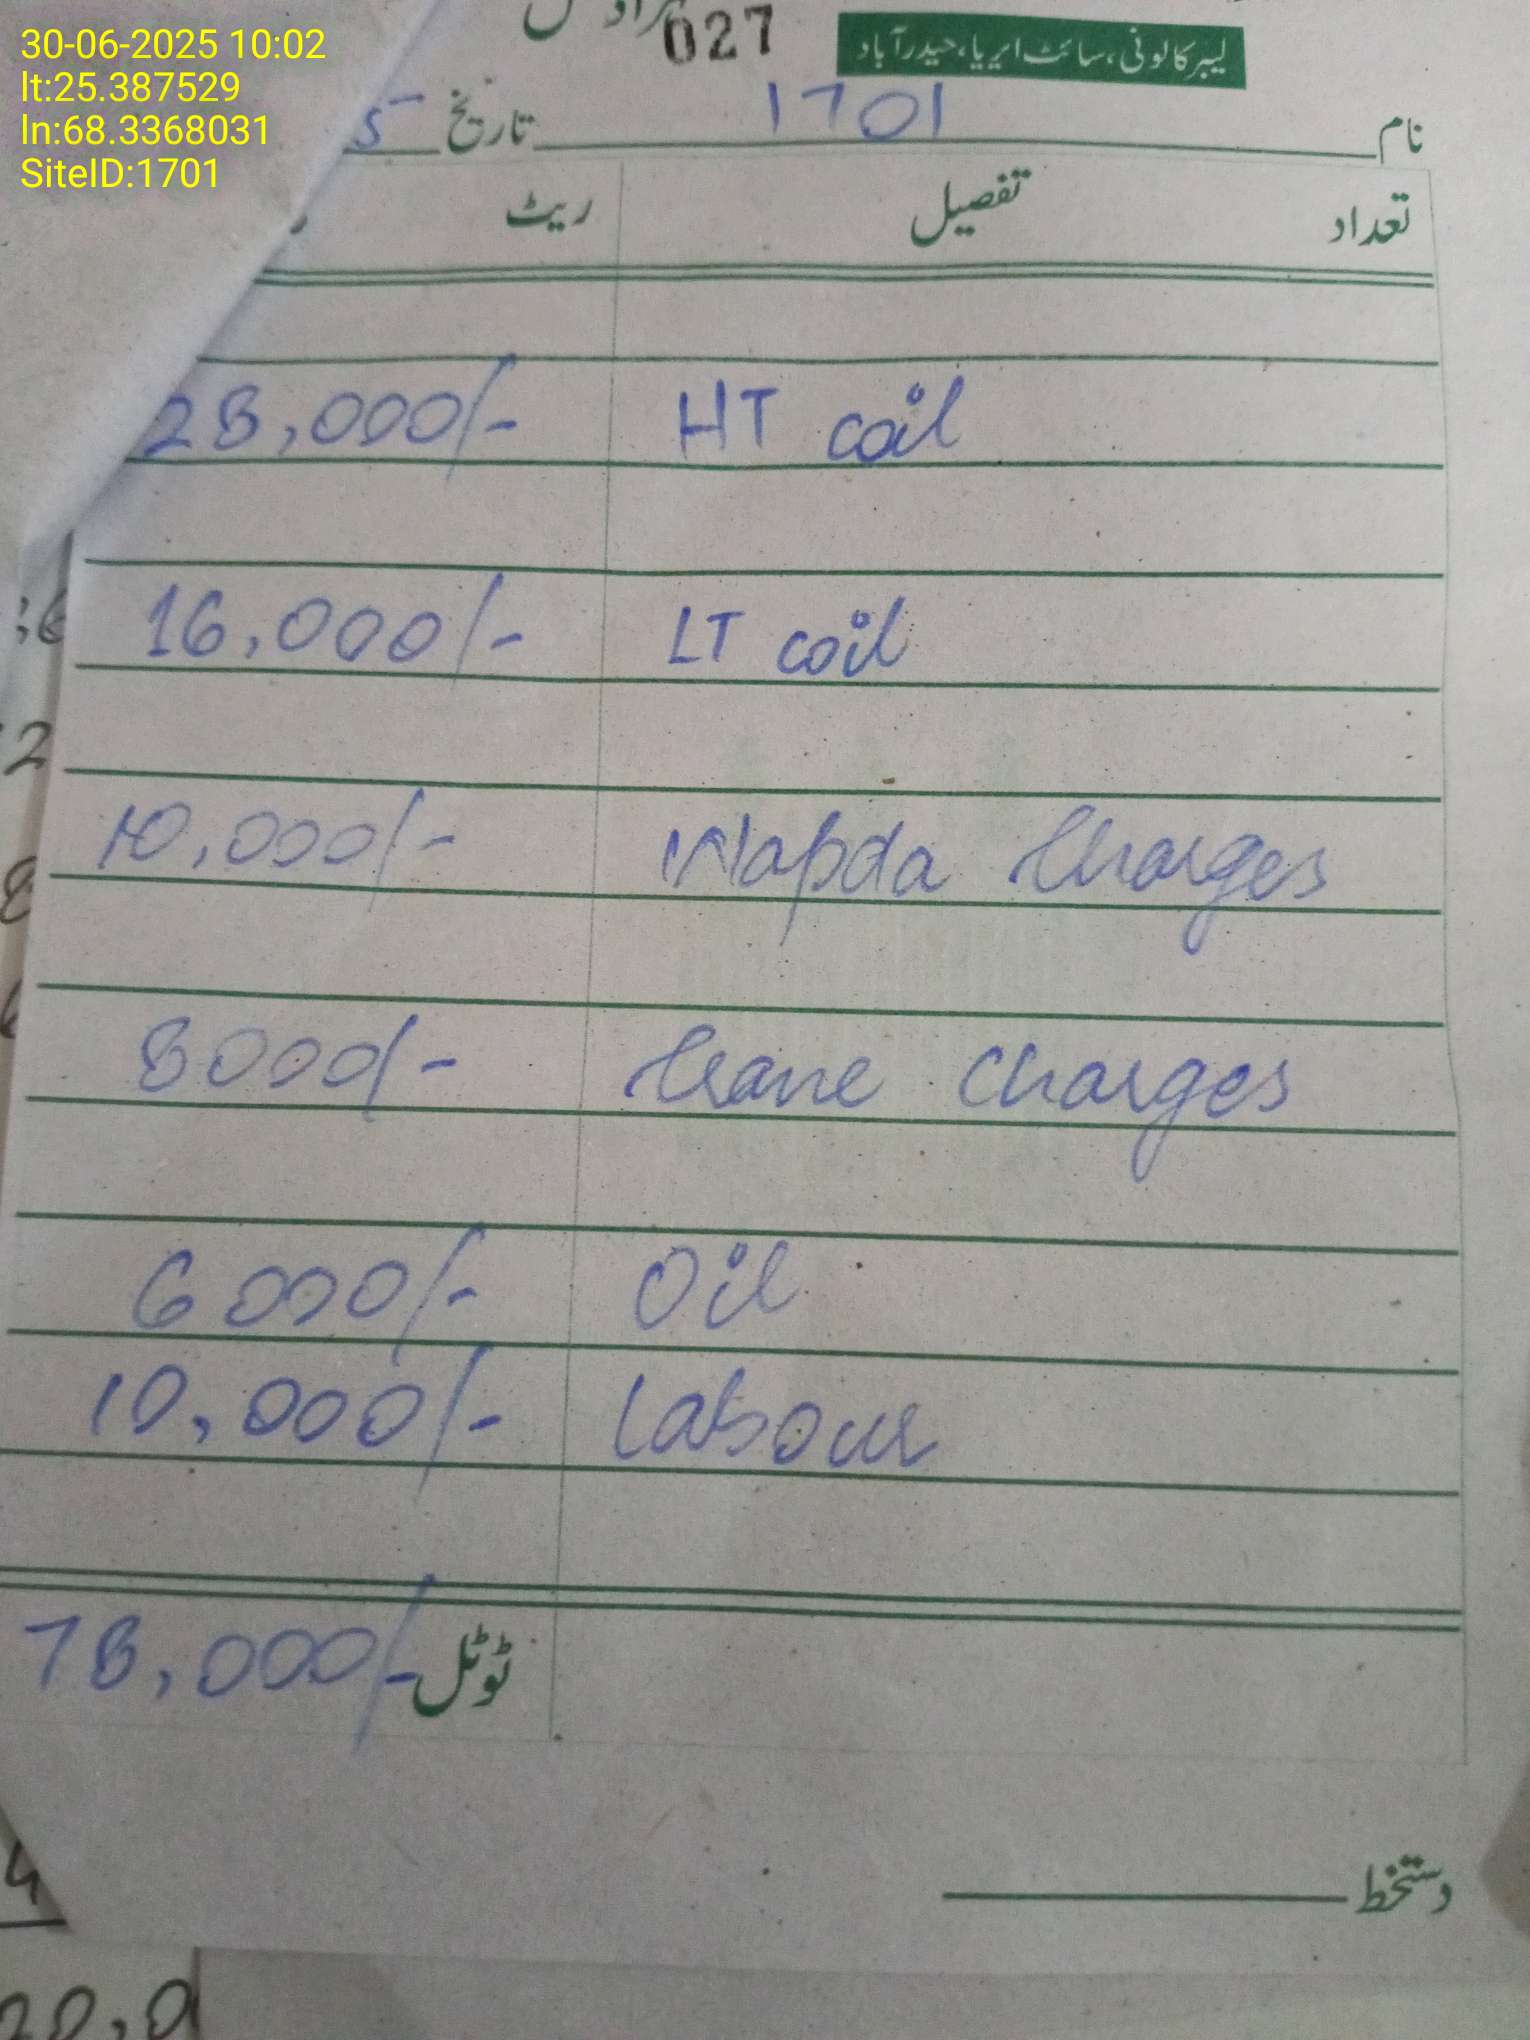 30-06-2025 10:02
lt:25.387529
ln:68.3368031
SiteID:1701
027
لیبر کالونی، سائٹ ایریا، حیدرآباد
نام 1701 تاریخ 5
تعداد تفصیل ریٹ
HT coil 28,000/-
LT coil 16,000/-
Wapda Charges 10,000/-
Crane Charges 8000/-
Oil 6000/-
Labour 10,000/-
ٹوٹل 78,000/-
دستخط